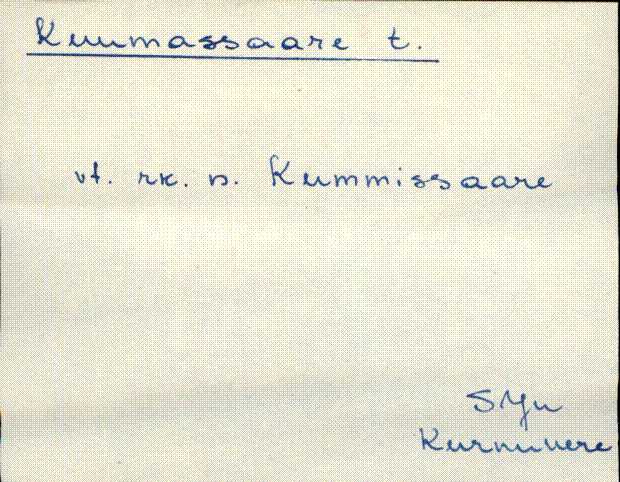 Kuumassaare t.
vt. rk. n. Kummissaare
SJn
Kurnuvere